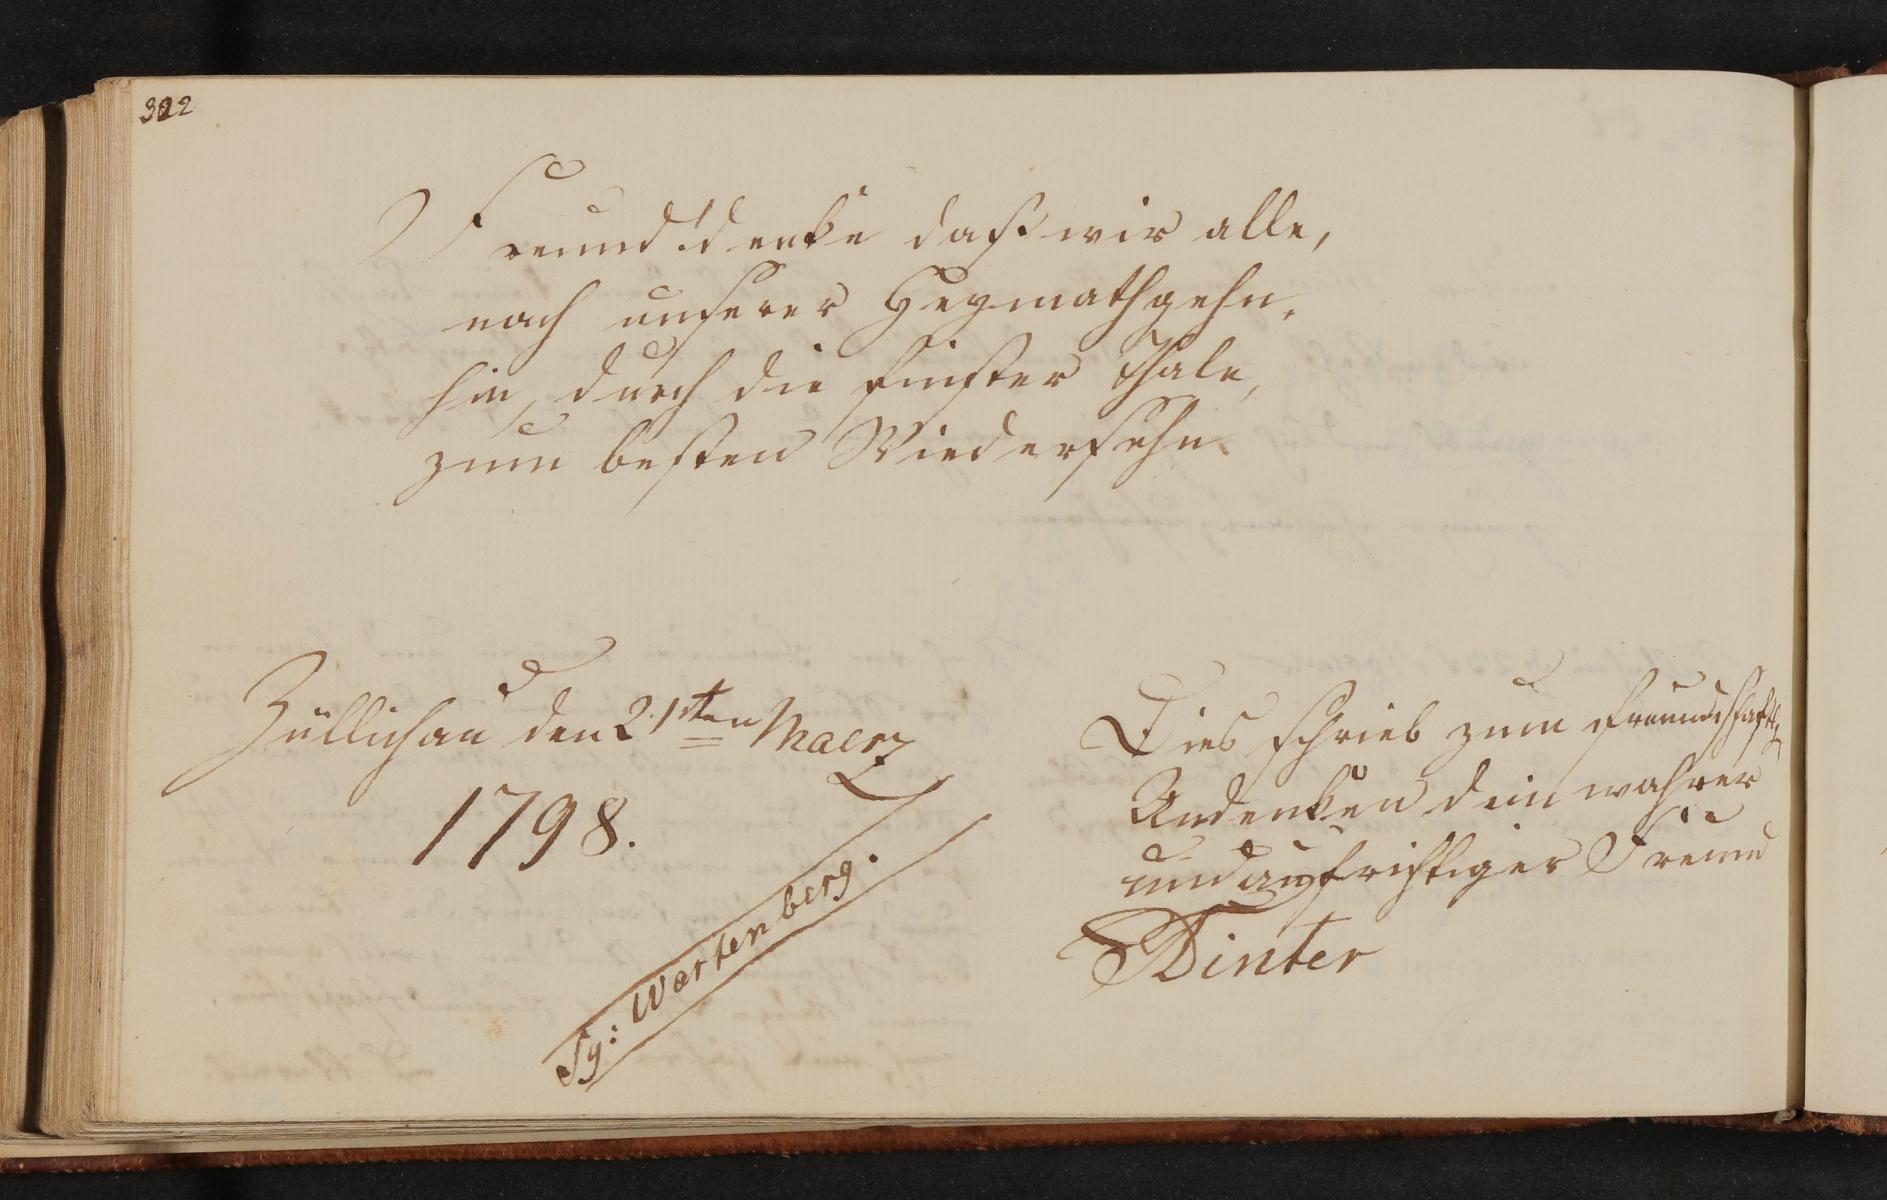 322
Freund! denke daß wir alle,
nach unserer Heymath gehn,
hin, durch die finster Thale,
zum besten Wiedersehn.
Züllichau den 21sten Maerz
1798.
Sy: Wartenberg.
Dies schrieb zum freundschaftl
Andenken dein wahrer
und aufrichtiger Freund
Dinter